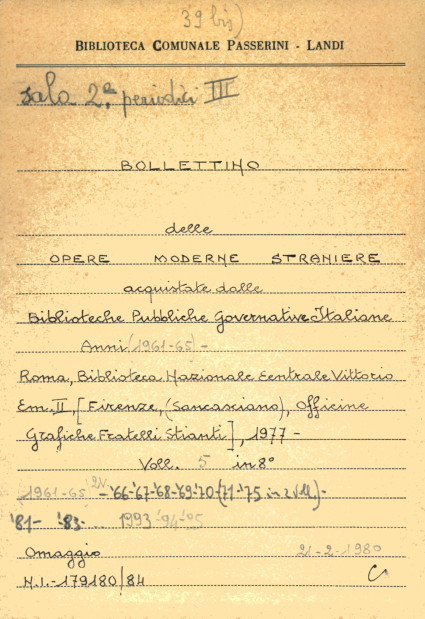 39 bis)
BIBLIOTECA COMUNALE PASSERINI - LANDI
sala 2.ª periodici III
BOLLETTINO
delle
OPERE MODERNE STRANIERE
acquistate dalle
Biblioteche Pubbliche Governative Italiane
Anni (1961-65) -
Roma, Biblioteca Nazionale Centrale Vittorio
Em. II, [Firenze, (Sancasciano), Officine
Grafiche Fratelli Stianti], 1977 -
Voll. 5 in 8º
1961-65 2N - '66-'67-'68-'69-'70-(71-'75 in 2 voll.) -
'81- '83- .. 1993 '94-'95
Omaggio 21-2-1980
N.I. - 179180/84